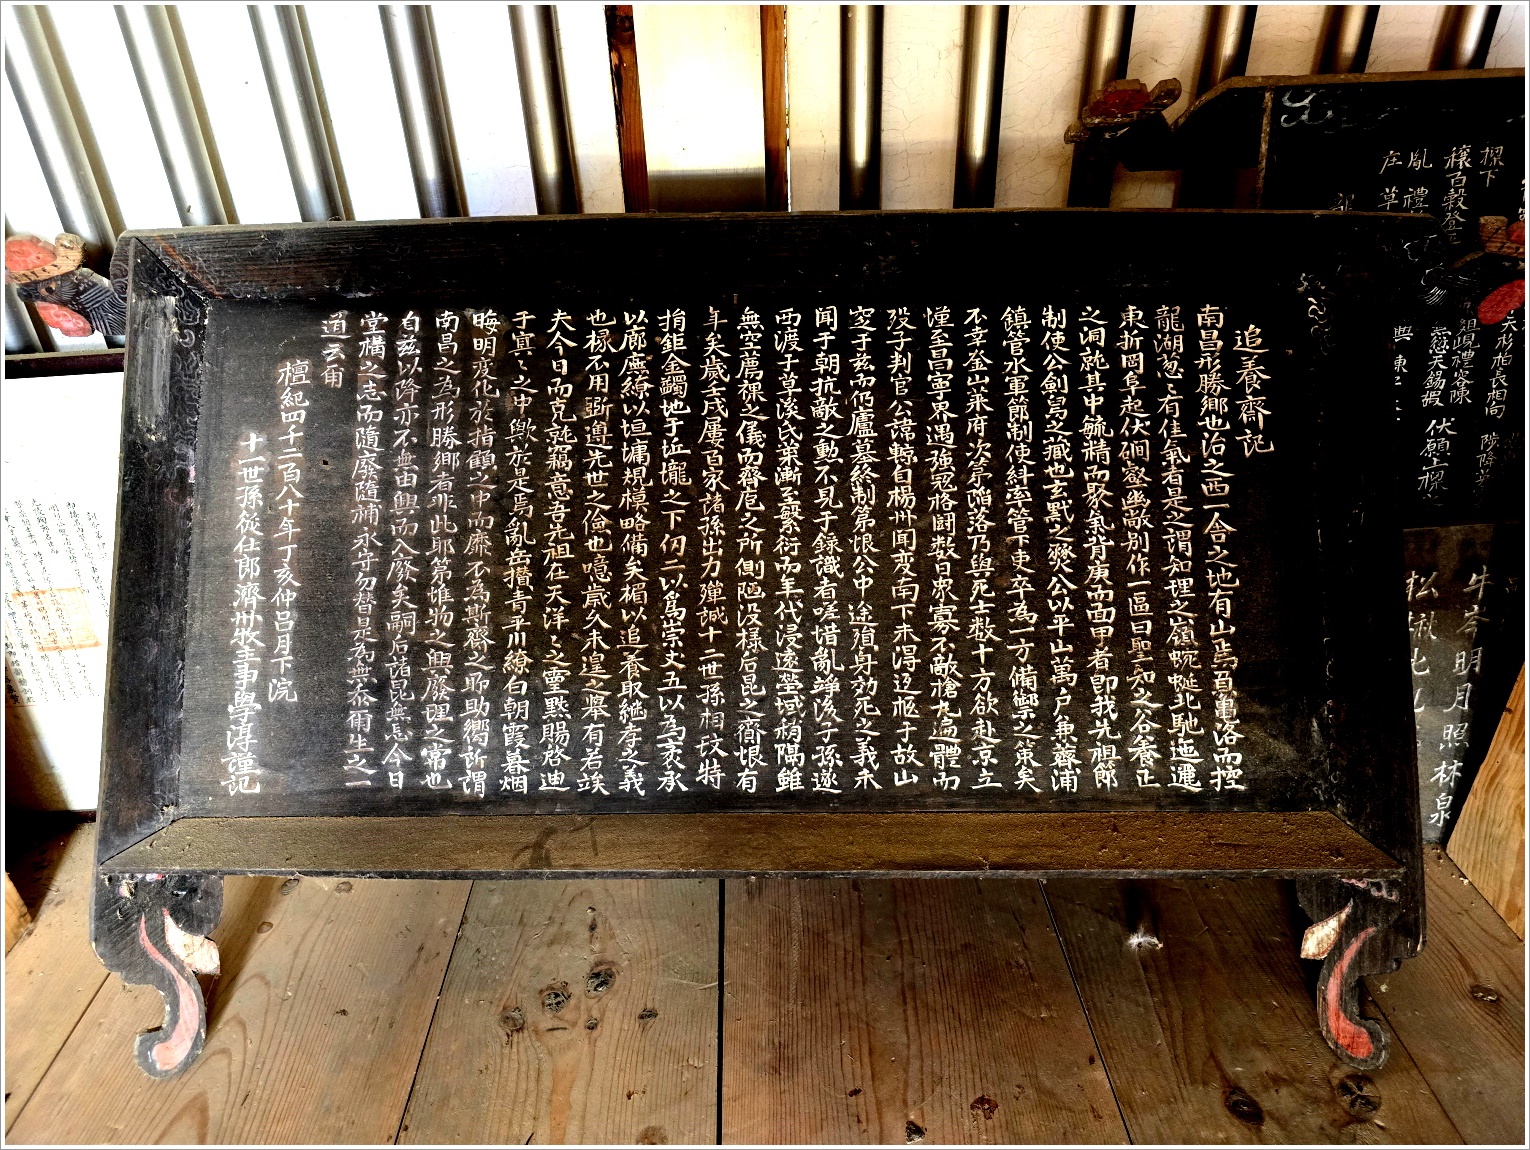 追養齋記
南昌形勝鄉也治之西一舍之地有山焉負龜洛而控
龍湖葱〻有佳氣者是之謂知理之嶺蜿蜒北馳迤邐
東折岡阜起伏磵壑幽敞別作一區曰聖知之谷養正
之洞就其中毓精而聚氣背庚而面甲者卽我先祖節
制使公劍舃之藏也玄戣之竁公以平山萬户兼蓉浦
鎮管水軍節制使糾率管下吏卒為一方備禦之策矣
不幸釜山萊府次第陷落乃與死士数十方欲赴京立
慬至昌寧界遇強寇格闘数日衆寡不敵槍丸遍體而
歿子判官公諱轅自楊州聞変南下未淂返柩于故山
窆于兹而仍廬墓終制第恨公中途殞身効死之義未
聞于朝抗敵之勳不見于錄識者嗟惜亂竫後子孫逐
西渡于草溪氏第漸至繁衍而年代浸遠塋域稍隔雖
無空薦祼之儀而齊庖之所側陋没樣后昆之齎恨有
年矣歲壬戌屢百家諸孫出力殫誠十二世孫相玟特
捐鉅金蠲地于近壠之下仞二以爲崇丈五以為袤承
以廊廡繚以垣墉規模略備矣楣以追養取継孝之義
也椽不用斲遵先世之儉也噫歲久未遑之擧有若竢
夫今日而克就竊意吾先祖在天洋〻之靈黙賜啓迪
于㝠〻之中歟於是焉亂岳攢青平川繚白朝霞暮烟
晦明变化於指顧之中而靡不為斯齋之所助嚮所謂
南昌之為形勝鄉者非此耶第惟物之興廢理之常也
自兹以降亦不無由興而入廢矣嗣后諸昆無忘今日
堂構之志而隨廢隨補永守勿替是為無忝爾生之一
道云爾
檀紀四千二百八十年丁亥仲呂月下浣
十一世孫從仕郎濟州牧主事學淳謹記
楔下
穰百穀登
亂 禮
庄 草
天錫嘏
伏願上樑
牛峯明月照林泉
松楸